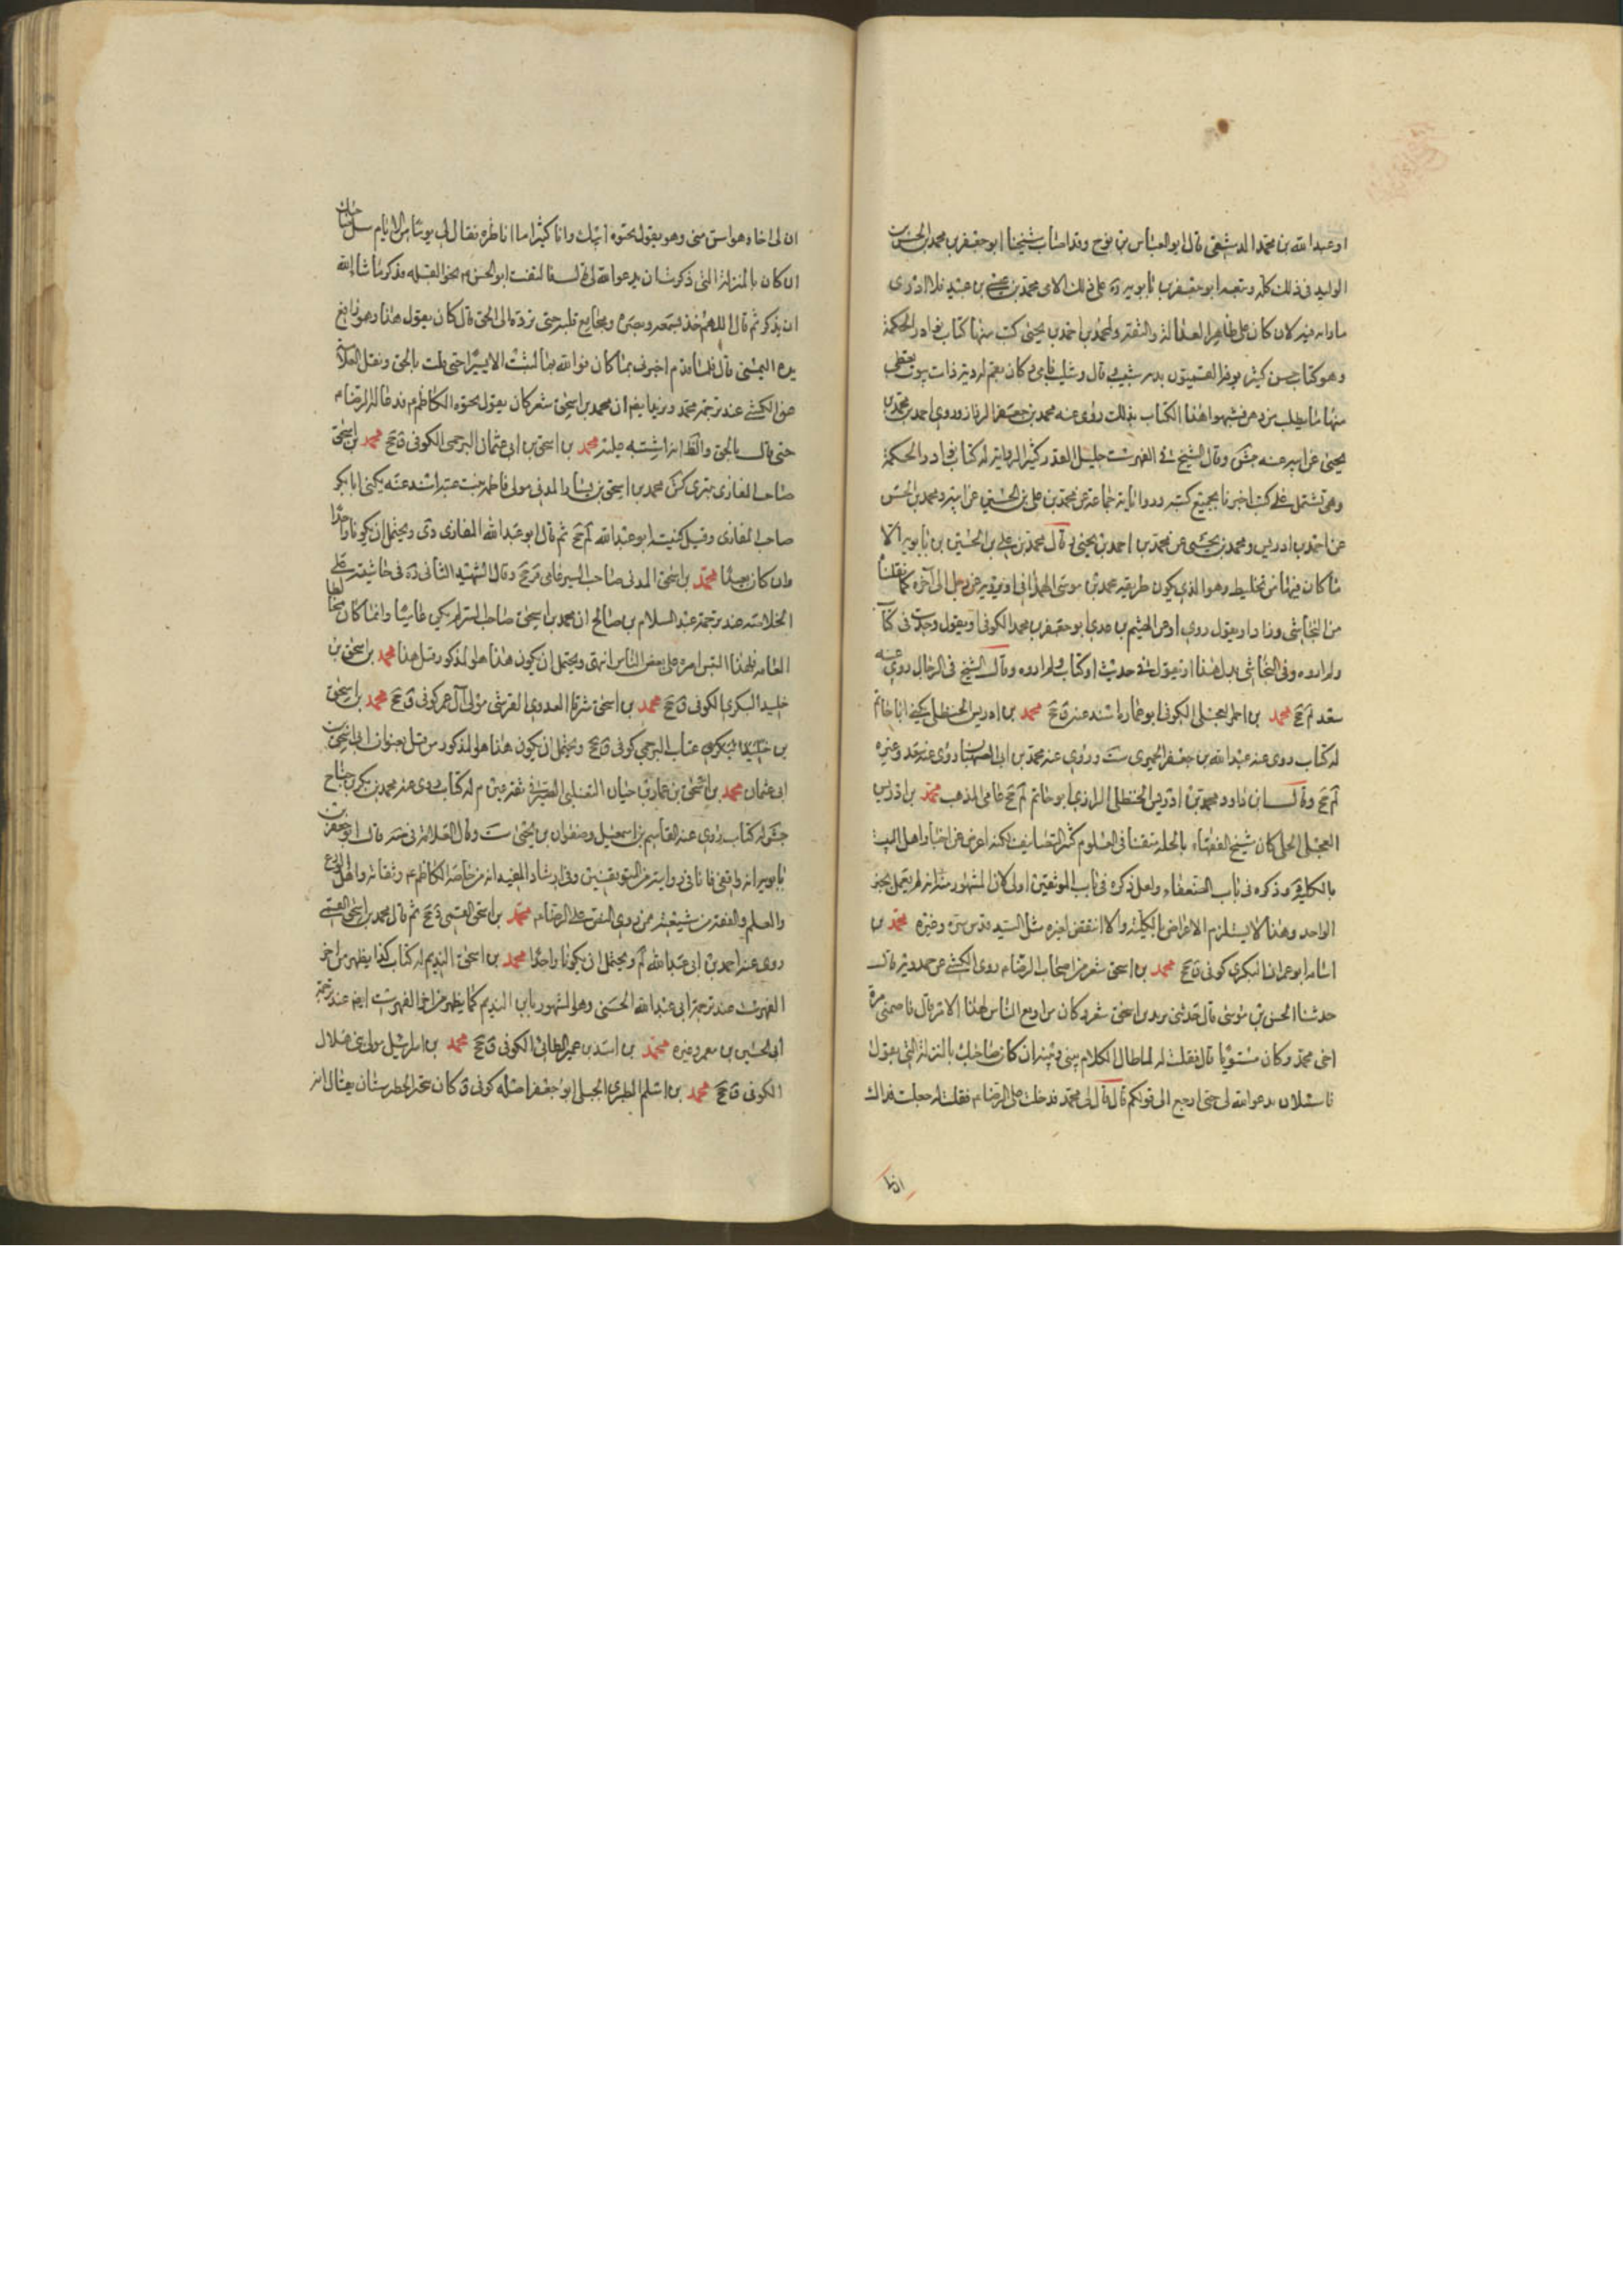 او عبدالله بن محمد الدمشقی قال ابوالعباس بن نوح وقد اصاب شیخنا ابوجعفر محمد بن الحسن بن
الولید فی ذلک کله وتبعه ابوجعفر بن بابویه ره علی ذلک الا فی محمد بن عیسی بن عبید فلا ادری
ما رابه فیه لانه کان علی ظاهر العدالة والثقة ولمحمد بن احمد بن یحیی کتب منها کتاب نوادر الحکمة
وهو کتاب حسن کبیر یعرفه القمیون بدبة شبیب قال وشبیب فامی کان بقم له دبة ذات بیوت یعطی
منها ما یطلب منه من دهن فشبهوا هذا الکتاب بذلک روی عنه محمد بن جعفر الرزاز وروی احمد بن محمد بن
یحیی عن ابیه عنه جش وقال الشیخ فی الفهرست جلیل القدر کثیر الروایة له کتاب نوادر الحکمة
وهی تشتمل علی کتب اخبرنا بجمیع کتبه وروایاته جماعة عن محمد بن علی بن الحسین عن ابیه ومحمد بن الحسن
عن احمد بن ادریس ومحمد بن یحیی عن محمد بن احمد بن یحیی قال محمد بن علی بن الحسین بن بابویه الا
ما کان فیها من تخلیط وهو الذی یکون طریقه محمد بن موسی الهمدانی او یرویه عن رجل الی آخره کما نقلنا
من النجاشی وزاد او یقول روی او عن الهیثم بن عدی ابوجعفر بن محمد الکوفی او یقول وجدت فی کتاب
ولم اروه وفی النجاشی بدل هذا او یقول فی حدیث او کتاب ولم اروه وقال الشیخ فی الرجال روی عنه
سعد لم جخ محمد بن احمر العجلی الکوفی ابو عمارة اسند عنه ق جخ محمد بن ادریس الحنظلی یکنی ابا حاتم
له کتاب روی عنه عبدالله بن جعفر الحمیری ست وروی عنه محمد بن ابی الصهبان روی عنه سعد وغیره
لم جخ وقال ابن داود محمد بن ادریس الحنظلی الرازی ابو حاتم لم جخ عامی المذهب محمد بن ادریس
العجلی الحلی کان شیخ الفقهاء بالحلة متقنا فی العلوم کثیر التصانیف لکنه اعرض عن اخبار اهل البیت
بالکلیة د وذکره فی باب الضعفاء ولعل ذکره فی باب الموثقین اولی لان المشهور منه انه لم یعمل بخبر
الواحد وهذا لا یستلزم الاعراض بالکلیة والا انتقض بغیره مثل السید قدس سره وغیره محمد بن
اسامة ابو عمران البکری کوفی ق جخ محمد بن اسحق شعر من اصحاب الرضا م روی الکشی عن حمدویه قال
حدثنا الحسن بن موسی قال حدثنی یزید بن اسحق شعر وکان من ارفع الناس لهذا الامر قال خاصمنی مرة
اخی محمد وکان مستویا قال فقلت له لما طال الکلام بینی وبینه ان کان صاحبک بالمنزلة التی یقول
فاسئله ان یدعو الله لی حتی ارجع الی قولکم قال قال لی محمد فدخلت علی الرضا م فقلت له جعلت فداک
ان لی
ان لی اخا وهو اسن منی وهو یقول بحیوة ابیک وانا کثیرا ما اناظره فقال لی یوما من الایام سل صاحبک
ان کان بالمنزلة التی ذکرت ان یدعو الله لی قال فالتفت ابو الحسن م نحو القبلة فذکر ما شاء الله
ان یذکر ثم قال اللهم خذ بسمعه وبصره ومجامع قلبه حتی ترده الی الحق قال کان یقول هذا وهو رافع
یده الیمنی قال فلما قدم اخبرنی بما کان فوالله ما لبثت الا یسیرا حتی قلت بالحق ونقل العلامة
عن الکشی عند ترجمة محمد ویزید انهم ان محمد بن اسحق شعر کان یقول بحیوة الکاظم م فدعا له الرضا م
حتی قال بالحق والظ انه اشتبه علیه محمد بن اسحق بن ابی عثمان البرجمی الکوفی ق جخ محمد بن اسحق
صاحب المغازی بتری کش محمد بن اسحق بن یسار المدنی مولی فاطمة بنت عتبة اسند عنه یکنی ابابکر
صاحب المغازی وقیل کنیته ابو عبدالله ثم قال ابو عبدالله المغازی دی ویحتمل ان یکونا واحدا
وان کان بعیدا محمد بن اسحق المدنی صاحب السیر عامی قر جخ وقال الشهید الثانی ره فی حاشیته علی
الخلاصة عند ترجمة عبدالسلام بن صالح ان محمد بن اسحق صاحب السیر لم یکن عامیا وانما کان مخالطا
العامة فلهذا التبس امره علی بعض الناس انتهی ویحتمل ان یکون هذا هو المذکور قبل هذا محمد بن اسحق بن
خلید البکری الکوفی ق جخ محمد بن اسحق العدوی القرشی مولی آل عمر کوفی ق جخ محمد بن اسحق
بن عتاب البرجمی کوفی ق جخ ویحتمل ان یکون هذا هو المذکور من قبل بعنوان ابن اسحق بن
ابی عثمان محمد بن اسحق بن عمار بن حیان التغلبی الصیرفی ثقة عین م له کتاب روی عنه محمد بن بکر بن جناح
جش له کتاب روی عنه القاسم بن اسمعیل وصفوان بن یحیی ست وقال العلامة فی صه قال ابو جعفر بن
بابویه انه واقفی فانا فی روایته من المتوقفین وفی ارشاد المفید انه من خاصة الکاظم م وثقاته واهل الورع
والعلم والفقه من شیعته ممن روی النص علی الرضا م محمد بن اسحق القمی دی جخ ثم قال محمد بن اسحق القمی
روی عنه احمد بن ابی عبدالله لم ویحتمل ان یکونا واحدا محمد بن اسحق الندیم له کتاب کذا یظهر من اخر
الفهرست عند ترجمة ابی عبدالله الحسنی وهو المشهور بابن الندیم کما یظهر من اخر الفهرست ایضا عند ترجمة
ابی الحسین بن معمر وغیره محمد بن اسد بن عمیر الطائی الکوفی ق جخ محمد بن اسرائیل مولی بنی هلال
الکوفی ق جخ محمد بن اسلم الطبری الجبلی ابو جعفر اصله کوفی وکان یتجر الی طبرستان یقال انه